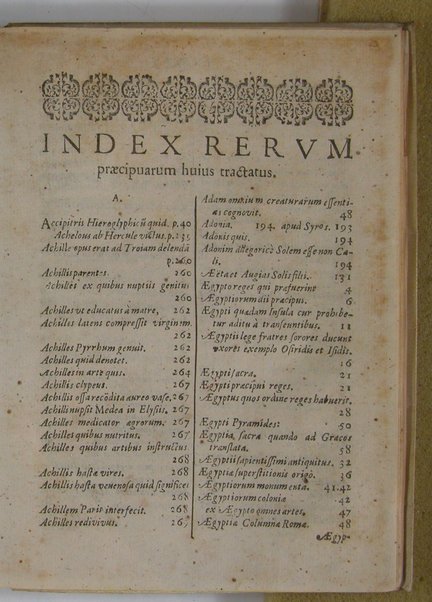 INDEX RERVM
præcipuarum huius tractatus.
A.
Accipitris Hieroglyphicũ quid. p.40
Achelous ab Hercule victus. p.235
Achille opus erat ad Troiam delendã
p.260
Achillis parentes. 260
Achilles ex quibus nuptiis genitus
260
Achilles vt educatus à matre, 262
Achilles latens compressit virginem.
262
Achilles Pyrrhum genuit. 262
Achilles quid denotet. 262
Achilles in arte quis. 264
Achillis clypeus. 267
Achillis ossa recõdita aureo vase. 267
Achilli nupsit Medea in Elysiis. 267
Achilles medicator agrorum. 267
Achilles quibus nutritus. 267
Achilles quibus artibus instructus
268
Achillis hastæ vires. 268
Achillis hasta venenosa quid significes
268
Achillem Paris interfecit. 268
Achilles redivivus. 267
Adam omnium creaturarum essenti-
as cognovit. 48
Adonia. 194. apud Syros. 193
Adonis quis. 194
Adonim allegoricè Solem esse non Cœ-
li. 194
Æeta et Augias Solis filii. 131
Ægypto reges qui præfuerint 4
Ægyptiorum dii præcipui. 6
Ægypti quædam Insula cur prohibe-
tur aditu à transeuntibus. 11
Ægyptii lege fratres sorores ducunt
vxores exemplo Osiridis et Isidis.
16
Ægypti sacra. 21
Ægypti præcipui reges. 21
Ægyptus quot ordine reges habuerit.
28
Ægypti Pyramides: 50
Ægyptia sacra quando ad Græcos
translata. 58
Ægyptii sapientissimi antiquitus. 32
Ægyptia superstitionis origo. 36
Ægyptiorum monumenta. 41.42
Ægyptiorum colonia 42
ex Ægypto omnes artes. 47
Ægyptia Columna Romæ. 48
Ægyp-